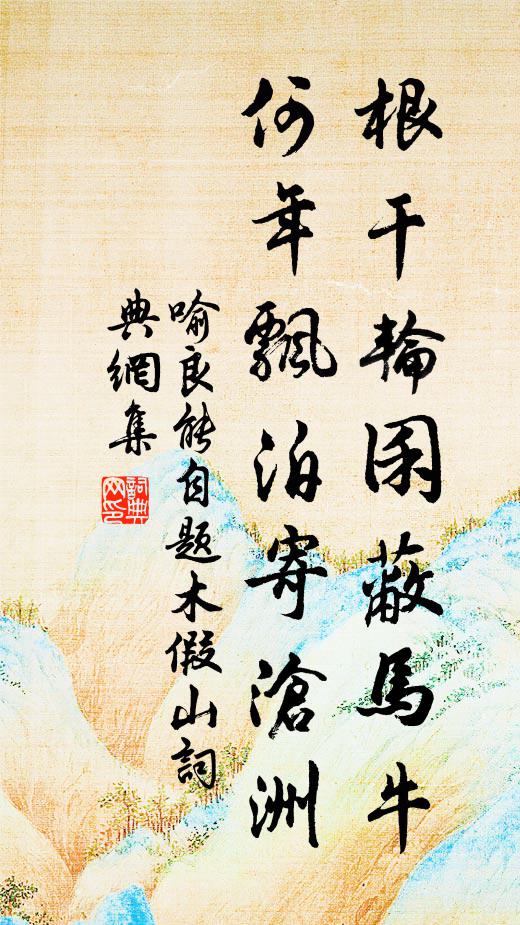 根干輪囷蔽馬牛
何年飄泊寄滄洲
喻良能自題木假山詞
典網集
詞典
网印